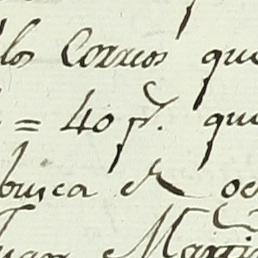 los Correos que
= 40 p.s que
busca de oc
Juan Marti